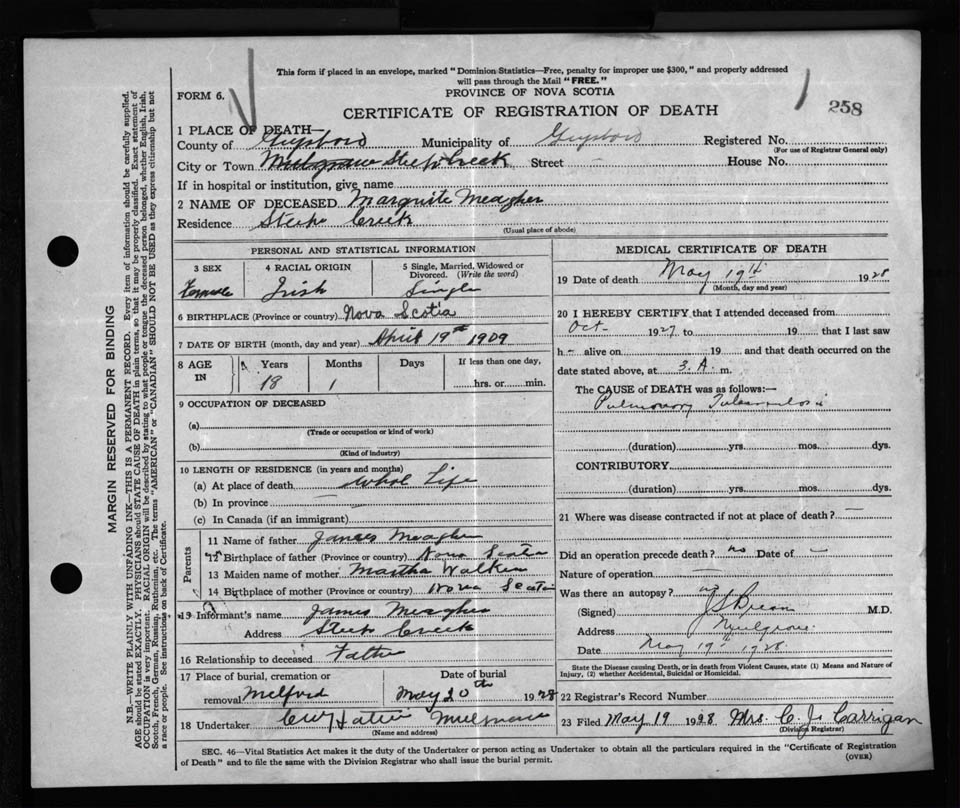 This form if placed in an envelope, marked "Dominion Statistics—Free, penalty for improper use $300," and properly addressed
will pass through the Mail "FREE."
FORM 6.
PROVINCE OF NOVA SCOTIA
CERTIFICATE OF REGISTRATION OF DEATH
258
1 PLACE OF DEATH—
County of Guysboro Municipality of Guysboro Registered No.
(For use of Registrar General only)
City or Town Mulgrave Steep Creek Street — House No.
If in hospital or institution, give name
2 NAME OF DECEASED Marguite Meagher
Residence Steep Creek
(Usual place of abode)
PERSONAL AND STATISTICAL INFORMATION
3 SEX 4 RACIAL ORIGIN 5 Single, Married, Widowed or Divorced. (Write the word)
Female Irish Single
6 BIRTHPLACE (Province or country) Nova Scotia
7 DATE OF BIRTH (month, day and year) April 19th 1909
8 AGE IN Years Months Days If less than one day,
18 1 hrs. or min.
9 OCCUPATION OF DECEASED
(a)
(Trade or occupation or kind of work)
(b)
(Kind of industry)
10 LENGTH OF RESIDENCE (in years and months)
(a) At place of death Whol Life
(b) In province —
(c) In Canada (if an immigrant)
Parents
11 Name of father James Meagher
12 Birthplace of father (Province or country) Nova Scotia
13 Maiden name of mother Martha Walker
14 Birthplace of mother (Province or country) Nova Scotia
15 Informant's name James Meagher
Address Steep Creek
16 Relationship to deceased Father
17 Place of burial, cremation or removal Date of burial
Melford May 20th 1928
18 Undertaker
(Name and address)
MEDICAL CERTIFICATE OF DEATH
19 Date of death May 19th 1928
(Month, day and year)
20 I HEREBY CERTIFY that I attended deceased from
Oct 1927 to 19 that I last saw
h— alive on 19 and that death occurred on the
date stated above, at 3.A. m.
The CAUSE of DEATH was as follows:—
Pulmonary Tuberculosis
(duration) yrs. mos. dys.
CONTRIBUTORY
(duration) yrs. mos. dys.
21 Where was disease contracted if not at place of death? —
Did an operation precede death? no Date of —
Nature of operation —
Was there an autopsy? no
(Signed) M.D.
Address Mulgrave
Date May 19th 1928.
State the Disease causing Death, or in death from Violent Causes, state (1) Means and Nature of
Injury, (2) whether Accidental, Suicidal or Homicidal.
22 Registrar's Record Number
23 Filed May 19 1928 Mrs. C. J. Carrigan
(Division Registrar)
SEC. 46—Vital Statistics Act makes it the duty of the Undertaker or person acting as Undertaker to obtain all the particulars required in the "Certificate of Registration
of Death" and to file the same with the Division Registrar who shall issue the burial permit.
(OVER)
MARGIN RESERVED FOR BINDING
N.B.—WRITE PLAINLY, WITH UNFADING INK—THIS IS A PERMANENT RECORD. Every item of information should be carefully supplied.
AGE should be stated EXACTLY. PHYSICIANS should STATE CAUSE OF DEATH in plain terms, so that it may be properly classified. Exact statement of
OCCUPATION is very important. RACIAL ORIGIN will be described by stating to what people or tongue the deceased person belonged, whether English, Irish,
Scotch, French, German, Russian, Ruthenian, etc. The terms "AMERICAN" or "CANADIAN" SHOULD NOT BE USED as they express citizenship but not
a race or people. See instructions on back of Certificate.